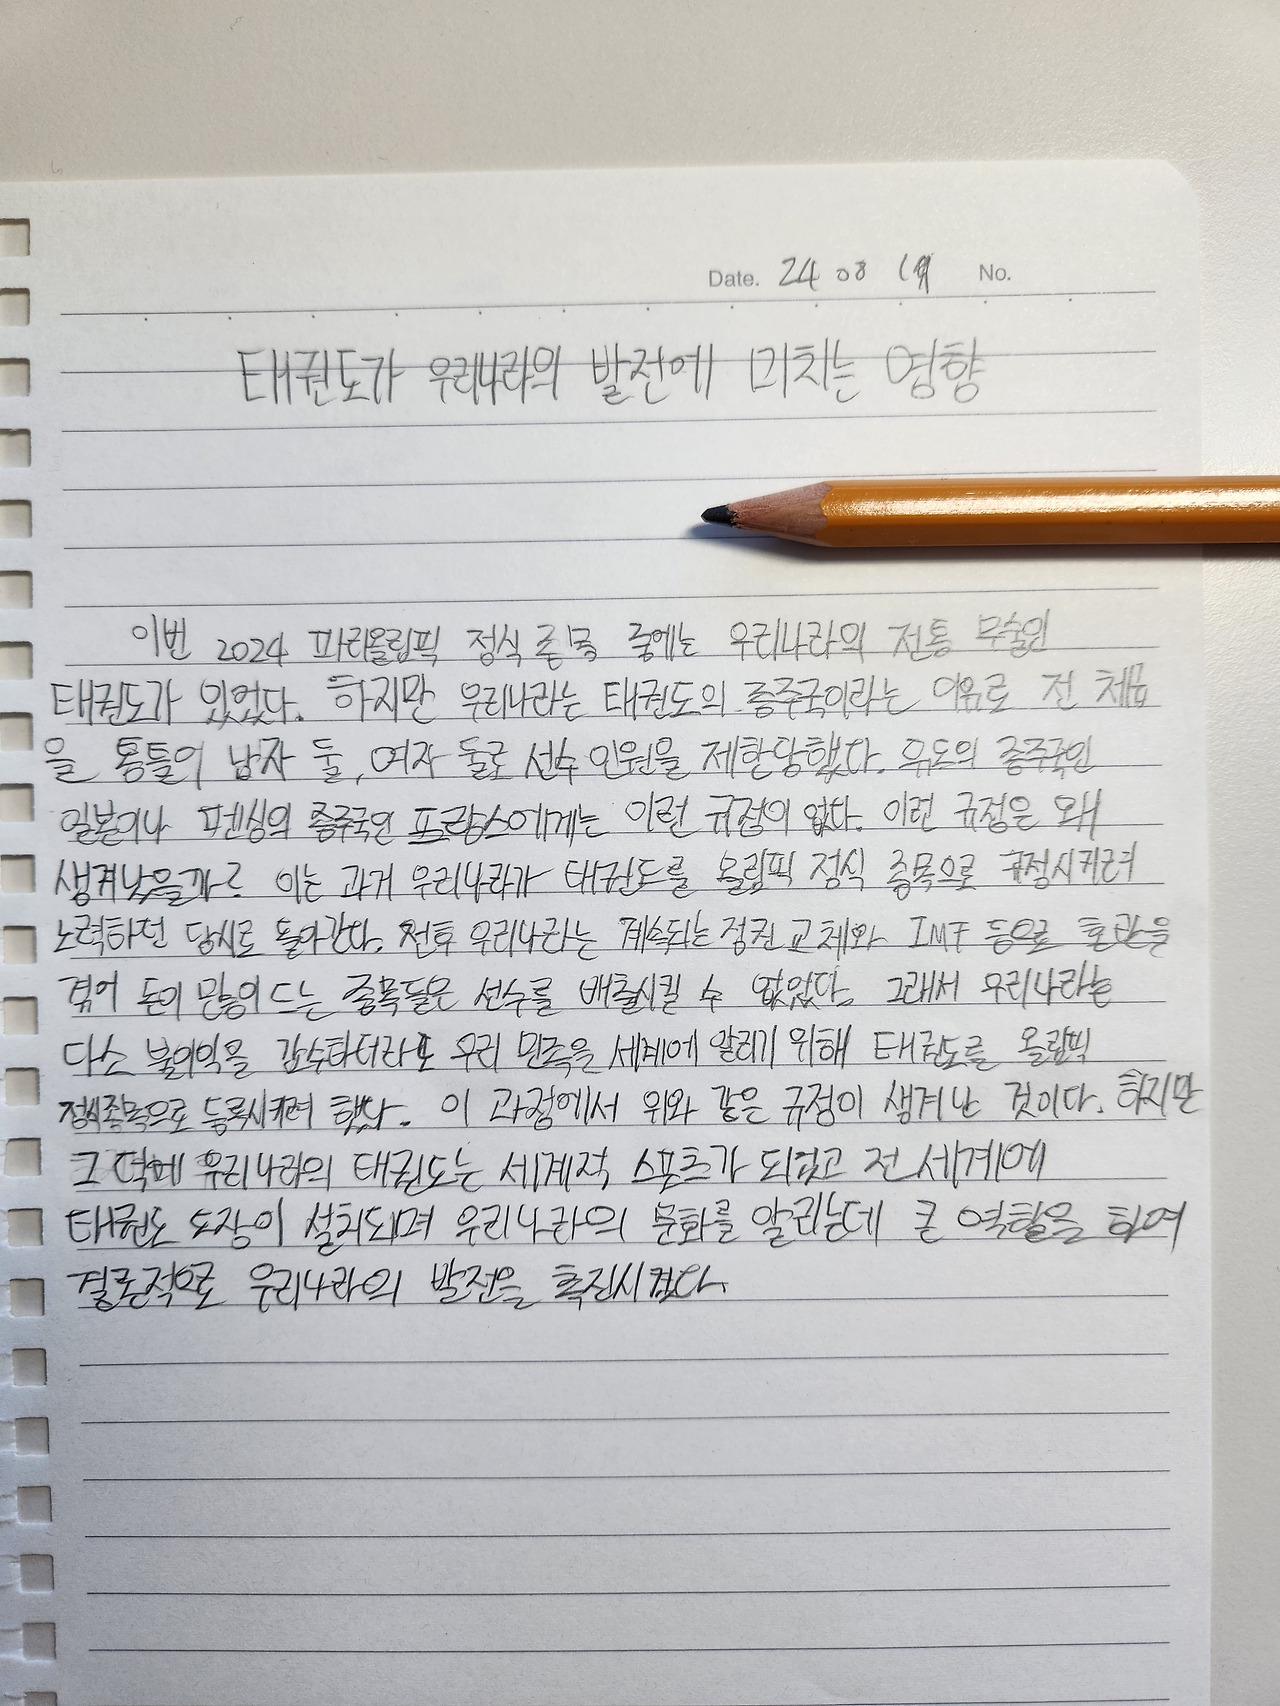 Date. 24 08 19 No.
태권도가 우리나라의 발전에 미치는 영향
이번 2024 파리올림픽 정식 종목 중에는 우리나라의 전통 무술인
태권도가 있었다. 하지만 우리나라는 태권도의 종주국이라는 이유로 전 체급
을 통틀어 남자 둘, 여자 둘로 선수 인원을 제한당했다. 유도의 종주국인
일본이나 펜싱의 종주국인 프랑스에게는 이런 규정이 없다. 이런 규정은 왜
생겨났을까? 이는 과거 우리나라가 태권도를 올림픽 정식 종목으로 규정시키려
노력하던 당시로 돌아간다. 전후 우리나라는 계속되는 정권 교체와 IMF 등으로 혼란을
겪어 돈이 많이 드는 종목들은 선수를 배출시킬 수 없었다. 그래서 우리나라는
다소 불이익을 감수하더라도 우리 민족을 세계에 알리기 위해 태권도를 올림픽
정식종목으로 등록시키려 했다. 이 과정에서 위와 같은 규정이 생겨난 것이다. 하지만
그 덕에 우리나라의 태권도는 세계적 스포츠가 되었고 전 세계에
태권도 도장이 설치되며 우리나라의 문화를 알리는데 큰 역할을 하여
결론적으로 우리나라의 발전을 촉진시켰다.